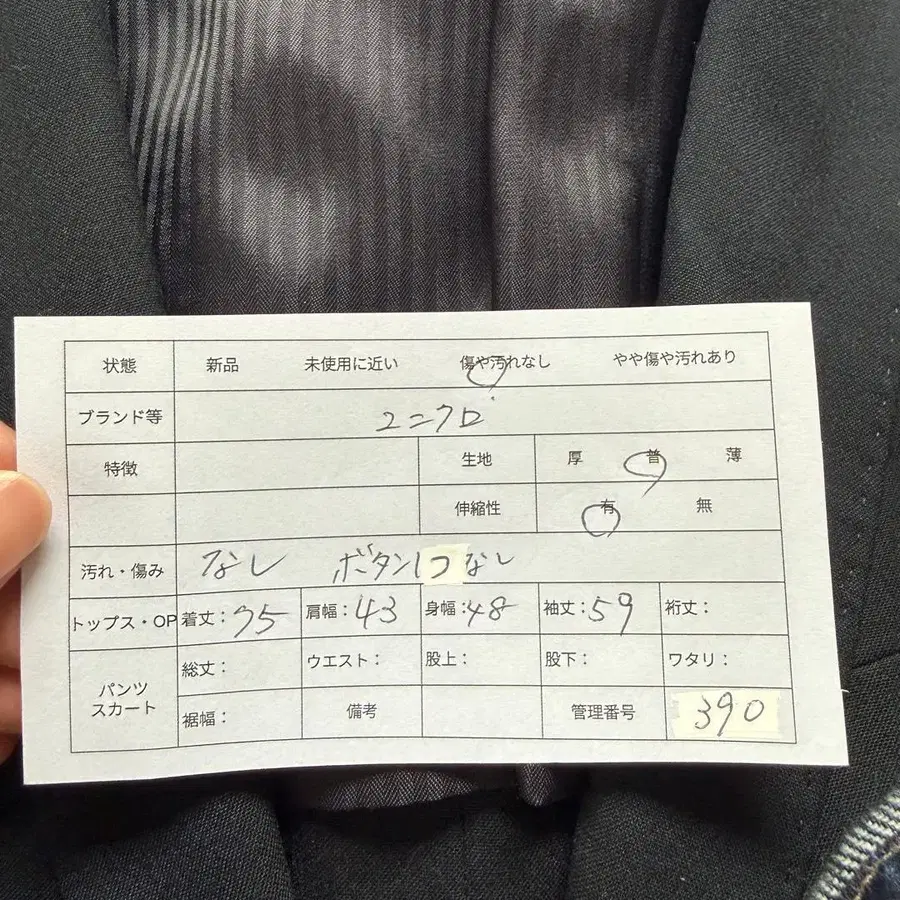 状態 新品 未使用に近い 傷や汚れなし やや傷や汚れあり
ブランド等 ユニクロ
特徴 生地 厚 普 薄
伸縮性 有 無
汚れ・傷み なし ボタン1つなし
トップス・OP 着丈：75 肩幅：43 身幅：48 袖丈：59 裄丈：
パンツ スカート 総丈： ウエスト： 股上： 股下： ワタリ：
裾幅： 備考 管理番号 390